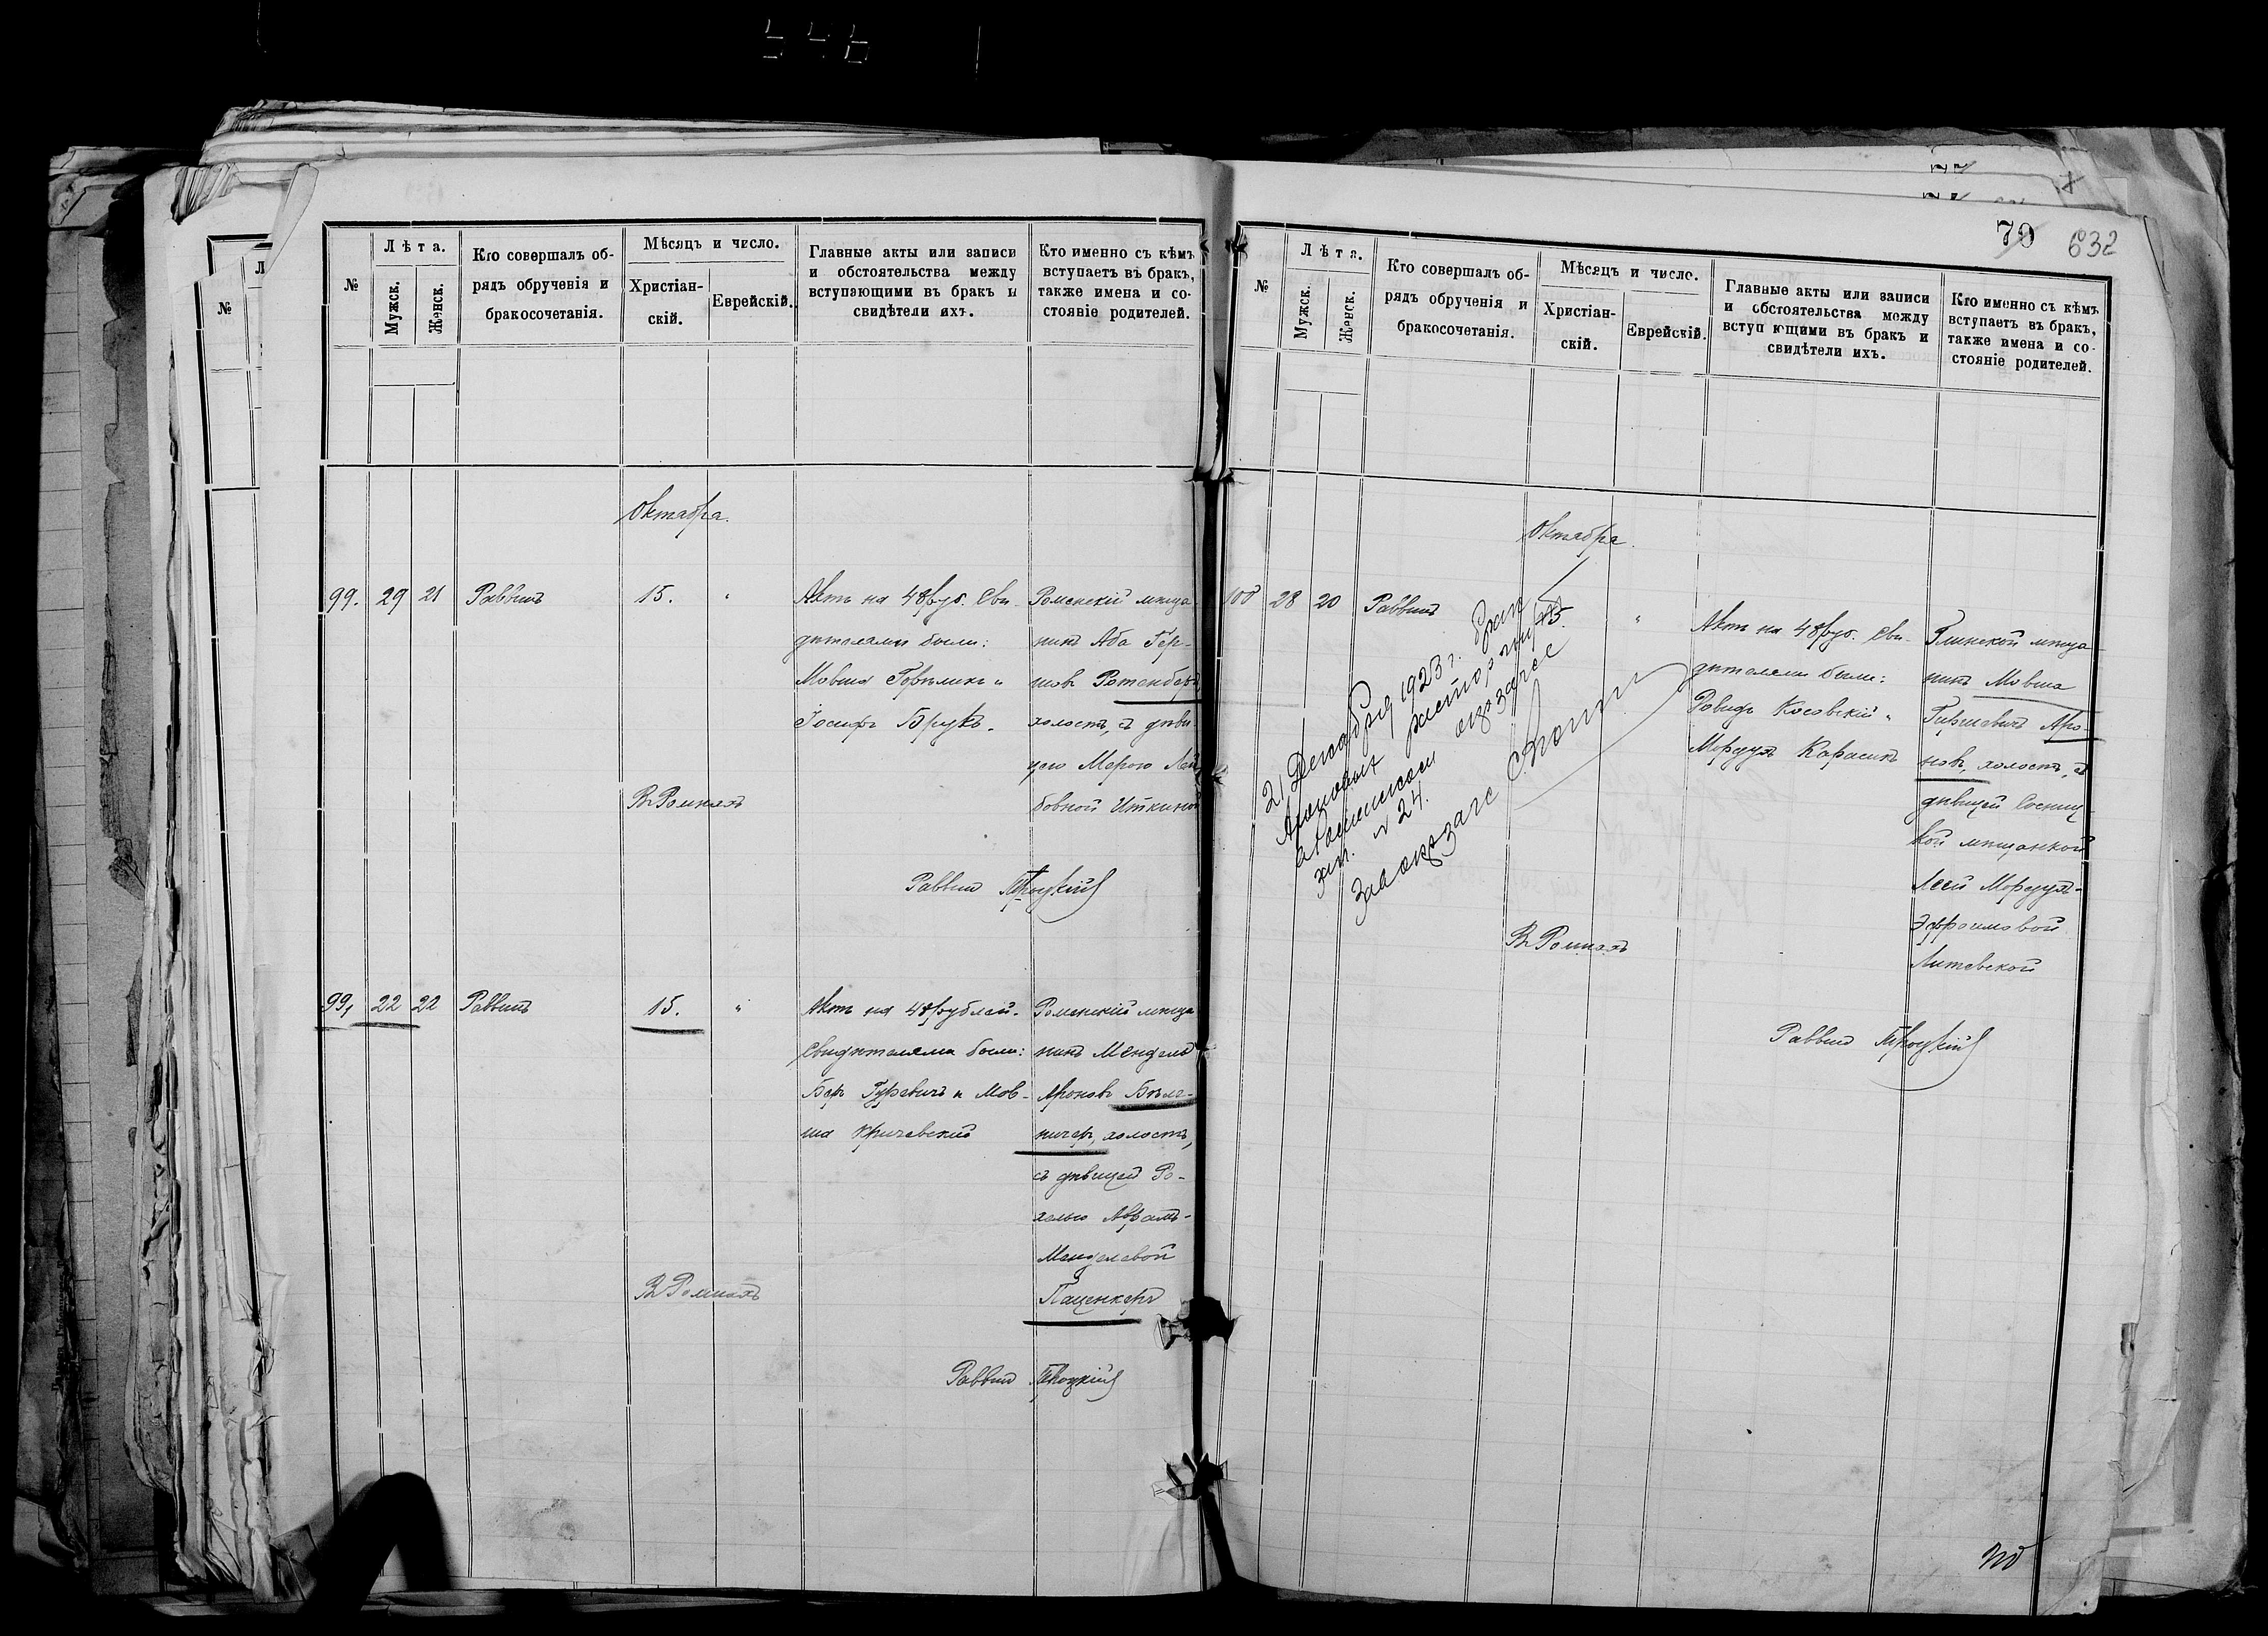 №
Лѣта.
Мужск.
Женск.
Кто совершалъ об-
рядъ обрученія и
бракосочетанія.
Мѣсяцъ и число.
Христіан-
скій.
Еврейскій.
Главные акты или записи
и обстоятельства между
вступающими въ бракъ и
свидѣтели ихъ.
Кто именно съ кѣмъ
вступаетъ въ бракъ,
также имена и со-
стояніе родителей.
Октября.
99. 29 21 Раввинъ 15. "
Актъ на 48 руб. Сви-
дѣтелями были:
Мовша
Іосифъ Брукъ.
Роменскій мѣща-
нинъ Аба Гер-
шовъ Ротенбергъ
холостъ, съ дѣви-
цею Мерою Лей-
бовной Иткиной
Въ Ромнахъ
Раввинъ
99, 22 22 Раввинъ 15. "
Актъ на 48 рублей.
Свидѣтелями были:
Беръ Гуревичъ и Мов-
ша Кричевскій
Роменскій мѣща-
нинъ Мендель
Ароновъ Бѣле-
ничеръ, холостъ,
съ дѣвицей Ро-
хелью Аврамъ-
Менделевой
Паценкеръ
Въ Ромнахъ
Раввинъ
70 632
№
Лѣта.
Мужск.
Женск.
Кто совершалъ об-
рядъ обрученія и
бракосочетанія.
Мѣсяцъ и число.
Христіан-
скій.
Еврейскій.
Главные акты или записи
и обстоятельства между
вступ ющими въ бракъ и
свидѣтели ихъ.
Кто именно съ кѣмъ
вступаетъ въ бракъ,
также имена и со-
стояніе родителей.
Октября.
100 28 20 Раввинъ 15. "
Актъ на 48 руб. Сви-
дѣтелями были:
Довидъ Косовскій и
Мордухъ Карасикъ
Глинской мѣща-
нинъ Мовша
Гиршевичъ Аро-
новъ, холостъ, съ
дѣвицей Сосниц-
кой мѣщанкой
Леей Мордухъ-
Эфроимовой
Литевской
21 Декабря 1923 г. брак
Ароновых расторгнут
окрзагсе
№ 24.
Завокрзагс
Въ Ромнахъ
Раввинъ